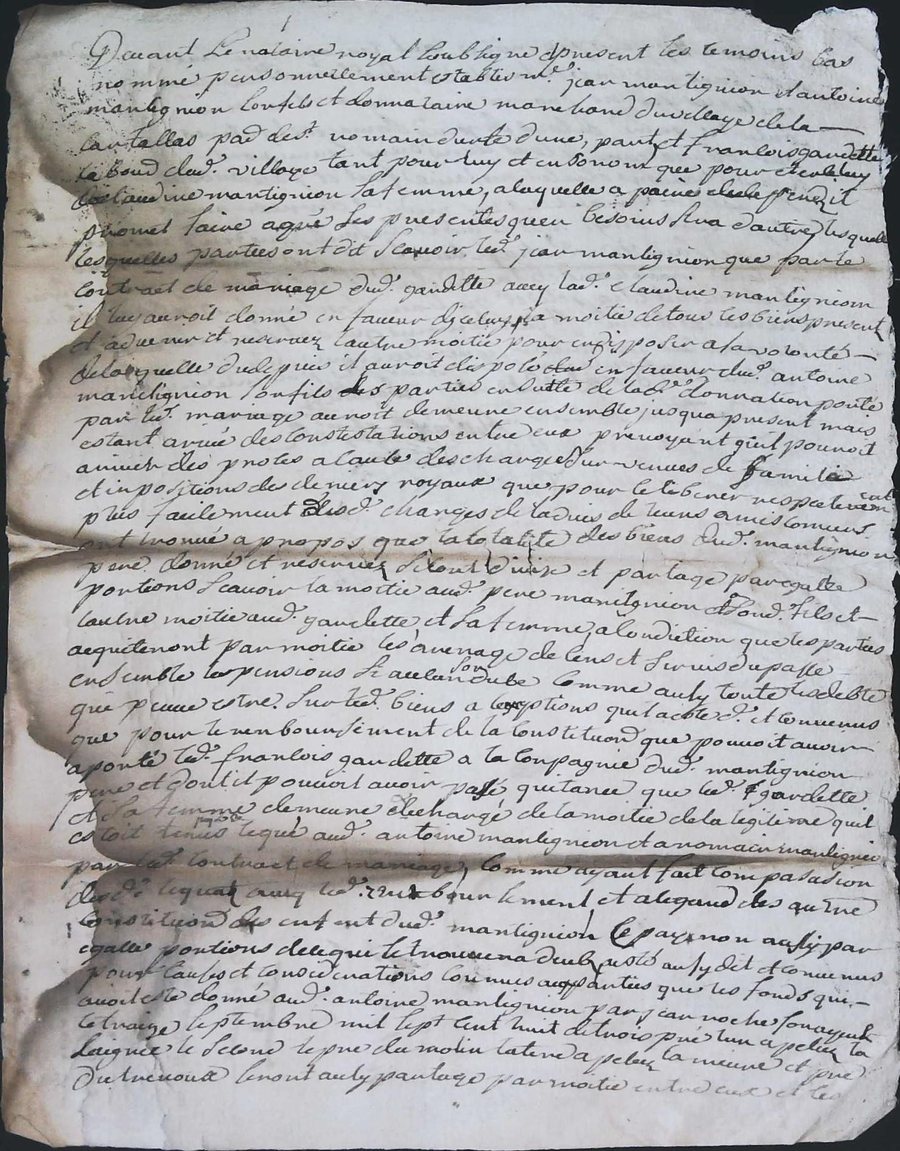 Devant Le notaire royal soubsigne et present les temoins bas
nommé personnellement establis m.e jean mantignion et antoine
mantignion son fils et donnataire marchand du village de la
pad des.t romain durfé d'une part et francois gardette
la boud dud. village tant pour luy et en son nom que pour et
claudine mantignion sa femme, a laquelle a
promet faire agré les presentes quen besoins sera d'autre, lesquelle
lesquelles parties ont dit scavoir led. jean mantignion que par le
contract de mariage dud. gardette avecq lad. claudine mantignion
il luy auroit donné en faveur dycelluy la moitié de tous les biens present
et advenir et reservez l'autre moitié pour en disposer a sa volonté
de laquelle du depuis il auroit disposé en faveur dud. antoine
mantignion son fils les parties en suitte de lad. donnation porté
par led. mariage auroit demeure ensemble jusqua present mais
estant arivé des constestations entre eux prevoyant quil pouroit
ariver des proces a cause des charges survenues de famille
et inpositions des deniers royaux que pour se liberer respectivement
plus facilement desd. charges de ladvis de leurs amis comuns
ont trouvé a propos que la totalité des biens dud. mantignion
pere donné et reservez seront divisé et partagé par egalle
portions scavoir la moitié aud. pere mantignion et sond. fils et
l'autre moitié aud. gardette et sa femme, a condiction que les parties
aquiteront par moitié les arerage de cens et servis du passé
ensemble les pensions comme aussy toute les debte
que peuve estre sur led. biens a exeptions quil a esté d. et convenus
que pour le remboursement de la constitution que pouvoit avoir
aporté led. francois gardette a la compagnie dud. mantignion
pere et dont il pouvoit avoir passé quitance que led. gardette
et sa femme demeure dechargé de la moitié de la legitime quil
estoit tenus aud. antoine mantignion et a romain mantignion
par led. contract de mariage, comme ayant fait compasasion
avecq led. remboursement et a legard des autre
constitution des enfent dud. mantignion se payeron aussy par
egalle portions de ce qui se trouvera deub a esté aussy dit et convenus
pour causes et considerations connues aux parties que les fonds qui
avoit esté donné aud. antoine mantignion par jean roche son ayeul
le traize septembre mil sept cent huit de trois pré lun apellez la
saignée le second le pré du molin la terre apellez la et pré
du seront aussy partagé par moitié entre eux et les